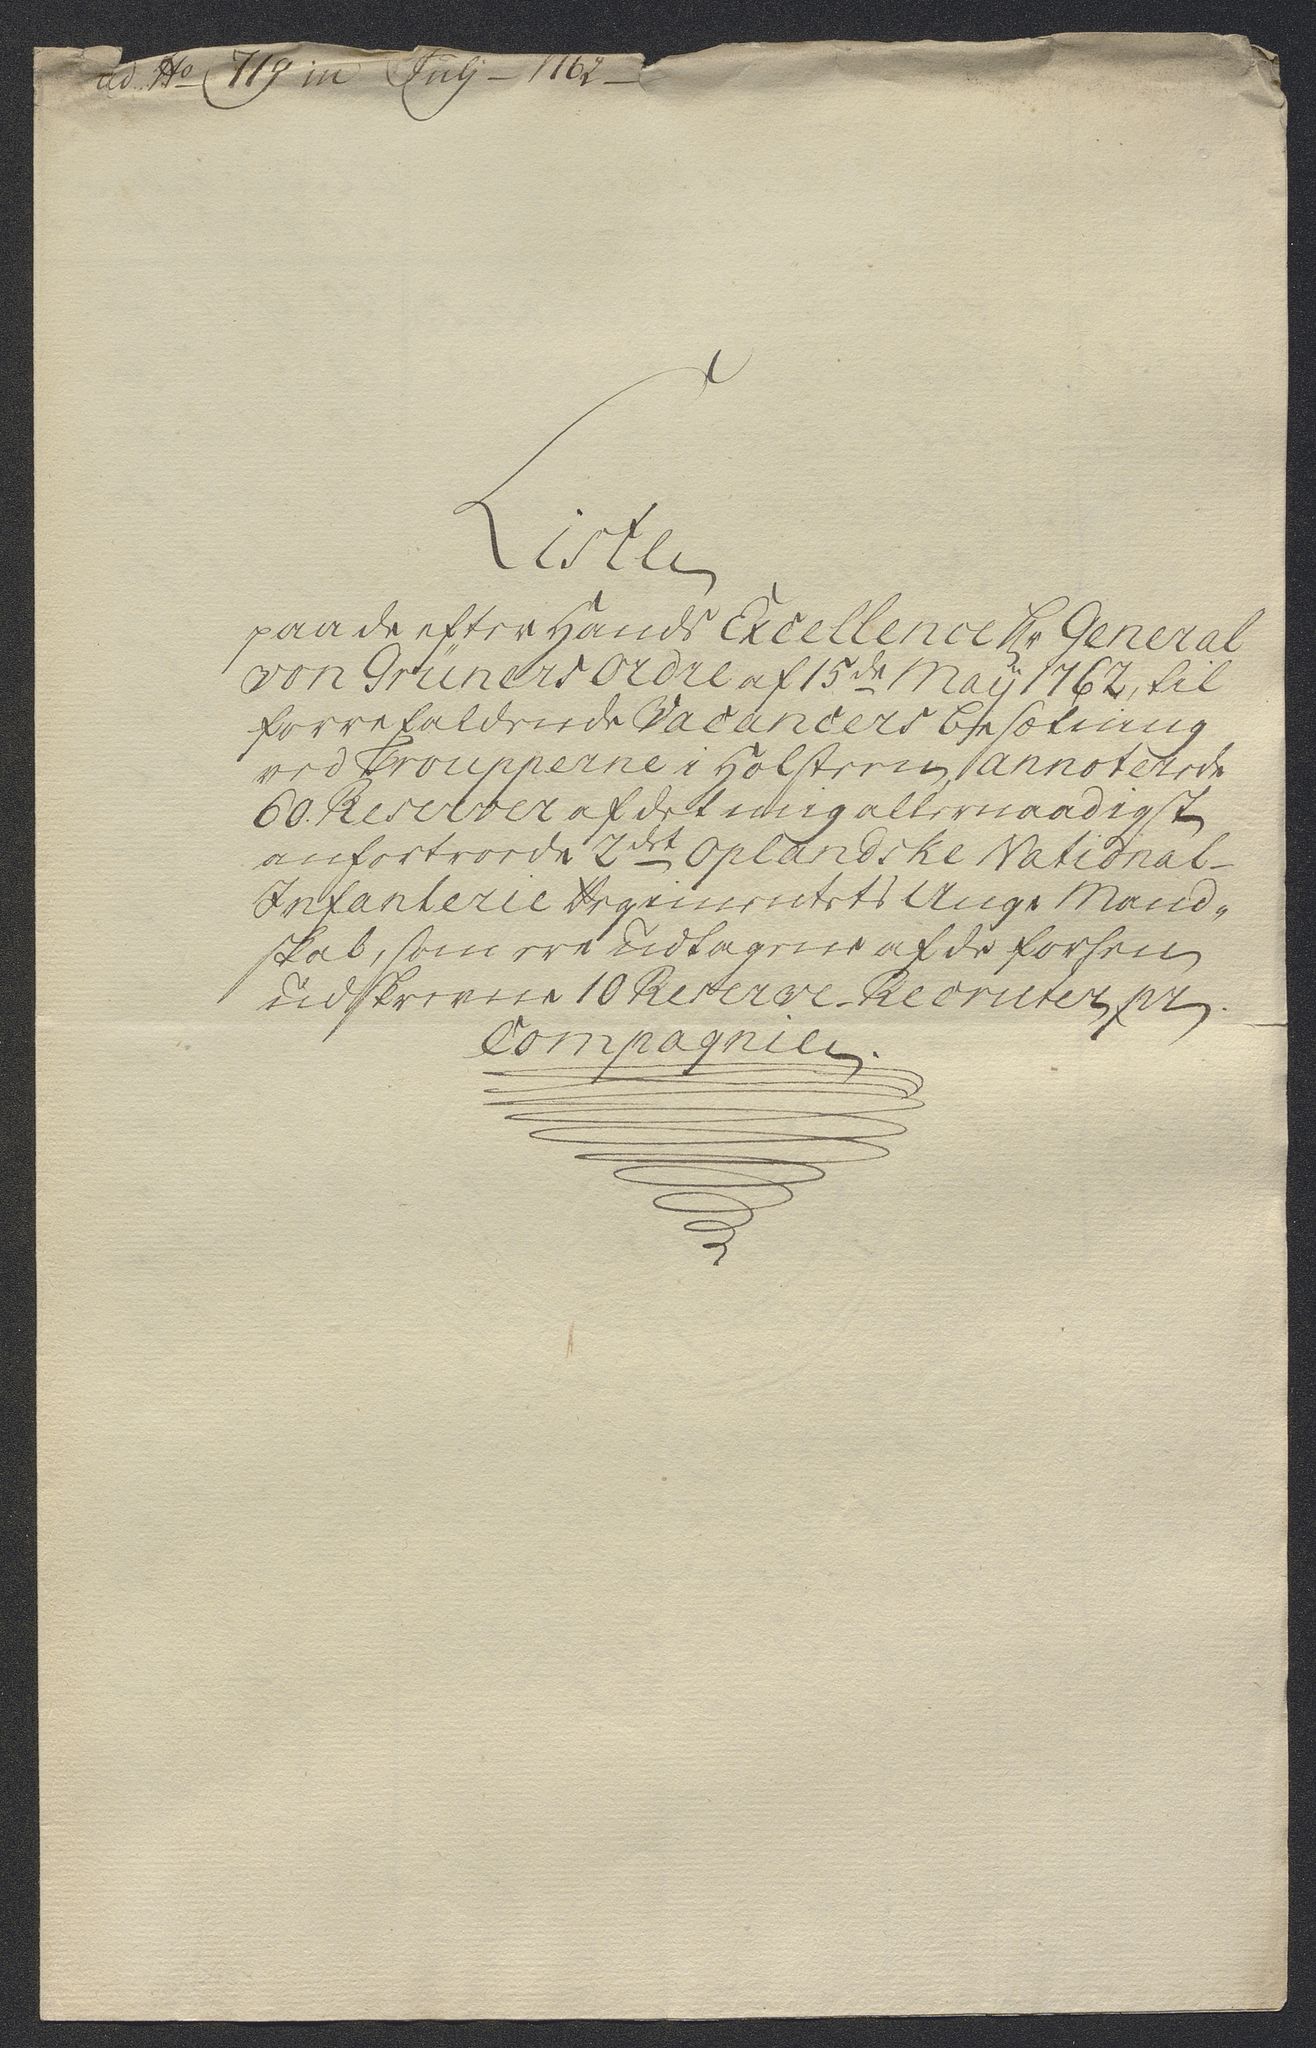 ad No 719 in Julj - 1762 -
Liste
paa de efter Hands Excellence Hr General
von Grüners Ordre af 15de Maÿ 1762, til
forrefaldende Vacancers besætning
ved Troupperne i Holsteen, annoterede
60. Reserver af det mig allernaadigst
anfortroede 2det Oplandske National-
Infanterie Regiments Unge Mand-
skab, som ere udtagene af de forhen
udskrevne 10 Reserve-Recruter pr
Compagnie.